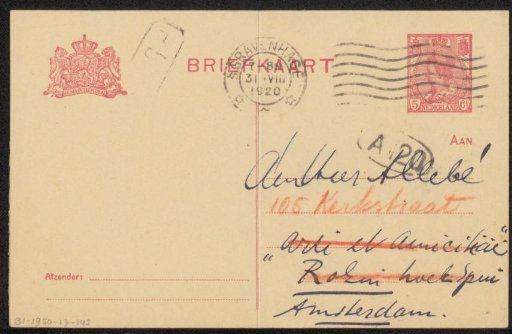 BRIEFKAART
'S-GRAVENHAGE
31 VIII
1920
5 NEDERLAND Ct
AAN
A 20
den Heer Allebé
105 Kerkstraat
"Arti et Amicitiae"
Rokin hoek Spui
Amsterdam.
Afzender:
B1-1950-17-142